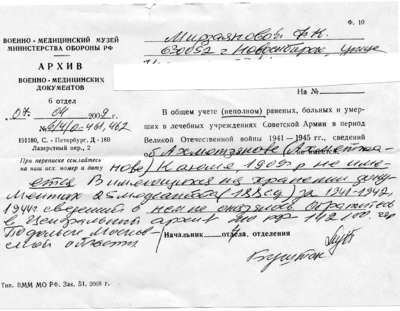 Ф. 10
ВОЕННО - МЕДИЦИНСКИЙ МУЗЕЙ
МИНИСТЕРСТВА ОБОРОНЫ РФ
АРХИВ
ВОЕННО - МЕДИЦИНСКИХ
ДОКУМЕНТОВ
6 отдел
07 04 2009 г.
№ 6/4/0-461,462
191180, С. - Петербург, Д - 180
Лазаретный пер., 2
При переписке ссылайтесь
на наш исх. номер и дату
Мирзаянова Ф.К.
630052 г. Новосибирск, улица
На №
В общем учете (неполном) раненых, больных и умер-
ших в лечебных учреждениях Советской Армии в период
Великой Отечественной войны 1941—1945 гг., сведений
о Ахметзянове (Ахметжа-
нове) 1909 р не име-
ется В имеющихся на хранении доку-
ментах за 1941-1942
1944г сведений о нем не Обратитесь
в Центральный архив МО РФ - 142100 гор
Подольск Москов-
ской области
Начальник отдела, отделения
Тип. ВММ МО РФ. Зак. 51, 2008 г.